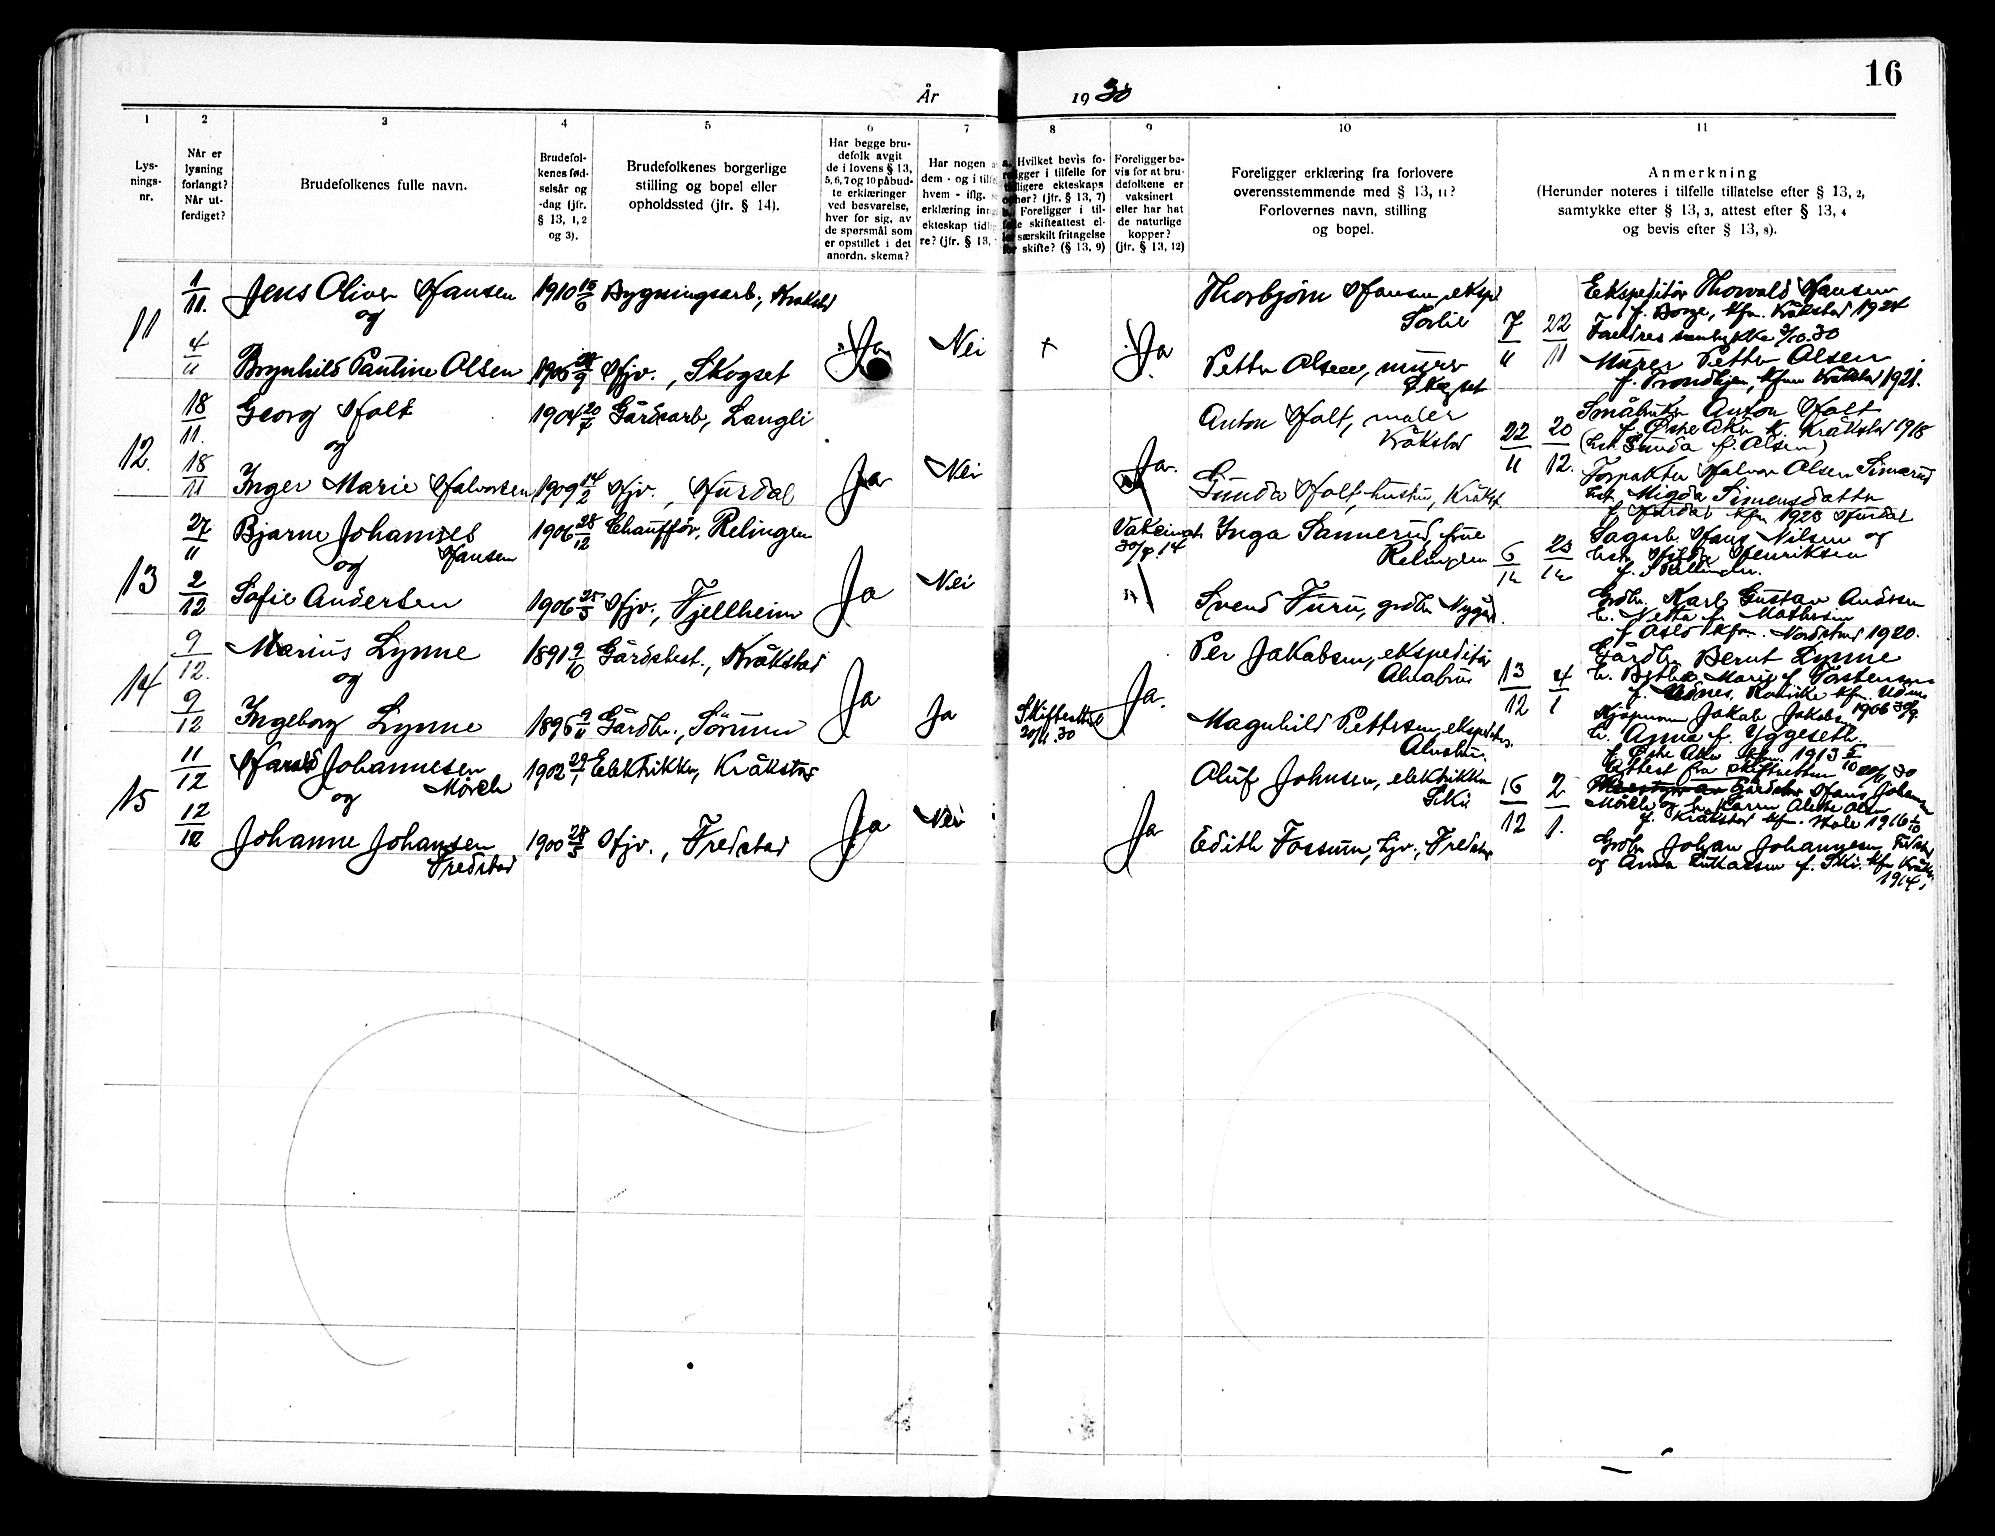 16
År 1930
1 2 3 4 5 6 7 8 9 10 11
Lys-
nings-
nr.
Når er
lysning
forlangt?
Når ut-
ferdiget?
Brudefolkenes fulle navn.
Brudefol-
kenes fød-
selsår og
-dag (jfr.
§ 13, 1, 2
og 3).
Brudefolkenes borgerlige
stilling og bopel eller
opholdssted (jfr. § 14).
Har begge bru-
defolk avgit
de i lovens § 13,
5, 6, 7 og 10 påbud-
te erklæringer
ved besvarelse,
hver for sig, av
de spørsmål som
er opstillet i det
anordn. skema?
Har nogen
dem - og i tilf
hvem - iflg.
erklæring inn
ekteskap tidl
re? (jfr. § 13,
Hvilket bevis fo-
religger i tilfelle for
tidligere ekteskaps
ophør? (jfr. § 13, 7)
Foreligger i til-
felle skifteattest el-
særskilt fritagelse
for skifte? (§ 13, 9)
Foreligger be-
vis for at bru-
defolkene er
vaksinert
eller har hat
de naturlige
kopper?
(jfr. § 13, 12)
Foreligger erklæring fra forlovere
overensstemmende med § 13, 11?
Forlovernes navn, stilling
og bopel.
Anmerkning
(Herunder noteres i tilfelle tillatelse efter § 13, 2,
samtykke efter § 13, 3, attest efter § 13, 4
og bevis efter § 13, 8).
11
1/11. Jens Oliver Hansen 1910 Bygningsarb., Kråkstad
og
4/11 Brynhild Pauline Olsen Hjv., Skogset
Ja Nei + Ja
Thorbjørn Hansen, eksp.
Sorlie 7/11 22/11
Petter Olsen, murer
Skogset
Ekspeditør Thorvald Hansen
f. Borge, kfm. Kråkstad 1924
Foreldres samtykke 2/10 30
Murer Petter Olsen
f. Trondhjem, kfm Kråkstad 1921.
12.
18/11. Georg Holt 1904 20/7 Gårdsarb, Langli
og
18/11 Inger Marie Halvorsen 1909 14/2 Hjv., Hurdal
Ja Nei Ja.
Anton Holt, maler
Kråkstad 22/11 20/12.
Gunda Holt, hustru, Kråkst.
Småbruker Anton Holt
f. Østre Aker k. Kråkstad 1918
Gunda f. Olsen)
Forpakter Halvor Olsen
Simensdatter
f. Hurdal kfm 1923 Hurdal
13
27/11 Bjarne Johannes
Hansen 1906 28/12 Chauffør, Relingen
og
2/12 Sofie Andersen 1906 25/5 Hjv., Fjellheim
Ja Nei
30/8. 14
Inga Sannerud, frue
Relingen 6/12 23/12
Svend Furu, grdbr. Nygård.
Sagarb. Hans Nilsen og
Hilda Henriksen
Grdbr. Karl Gustav Andersen
f. Oslo kfm. Nordstrand 1920.
14
9/12. Marius Lynne 1891 9/10 Gårdsbest., Kråkstad
og
9/12 Ingeborg Lynne 1896 Gårdbr., Sørum
Ja Ja
Skifteattest
20/11.30
Ja.
Per Jakobsen, ekspeditør
Alnabru 13/12 4/1
Magnhild Pettersen, ekspeditr.
Alnabru.
Gårdbr. Bernt Lynne
f. Udnes, Romerike kfm. Udnes
1906 30/9.
Jakob Jakobsen
h. Anna f. Yggeseth.
f. Østre Aker kfm. 1913
Attest fra skifteretten 20/11 30
15
11/12 Harald Johannesen
Mörch 1902 29/1 Elektriker, Kråkstad
og
12/12 Johanne Johansen
Fredstad 1900 28/5 Hjv., Fredstad
Ja Nei Ja
Oluf Johnsen, elektriker
Ski 16/12 2/1.
Edith Fossum, hjv., Fredstad
Gårdbr Hans Johansen
Mörch og h. Karen Olsen
f. Kråkstad kfm. 1916
Grdbr. Johan Johannesen Fredstad
og Anna f. Ski. kfm. Kråkst.
1914.